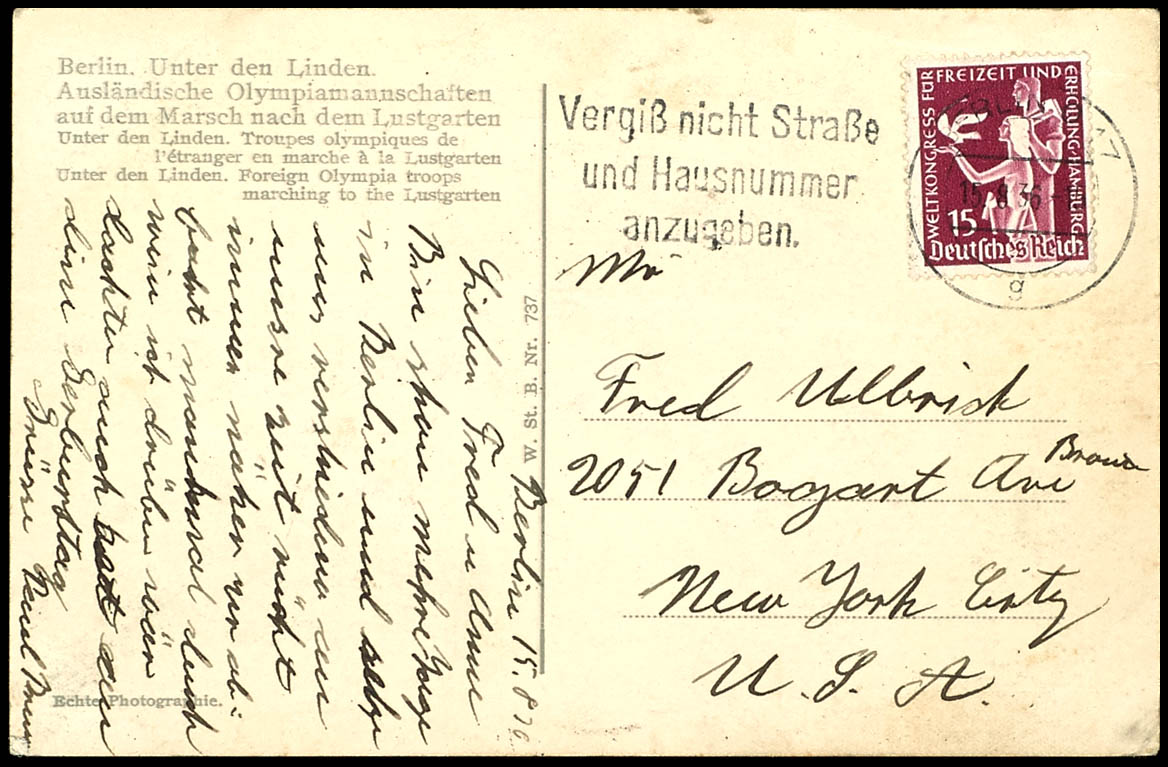 Berlin. Unter den Linden.
Ausländische Olympiamannschaften
auf dem Marsch nach dem Lustgarten
Unter den Linden. Troupes olympiques de
l'étranger en marche à la Lustgarten
Unter den Linden. Foreign Olympia troops
marching to the Lustgarten
Vergiß nicht Straße
und Hausnummer
anzugeben.
WELTKONGRESS FÜR FREIZEIT UND ERHOLUNG·HAMBURG
15
Deutsches Reich
15.8.36
g
W. St. B. Nr. 737
Berlin 15.8.36
Lieben Fred u Anne
Bin schon mehre Tage
in Berlin und
uns verschiedenes an
unsre Zeit rückt
immer näher
manchmal durch
wenn ich drüben wär
dachten auch an
dein Geburtstag
Grüsse
Mr
Fred Ullrich
2051 Bogart Ave Bronx
New York City
U. S. A.
Echte Photographie.